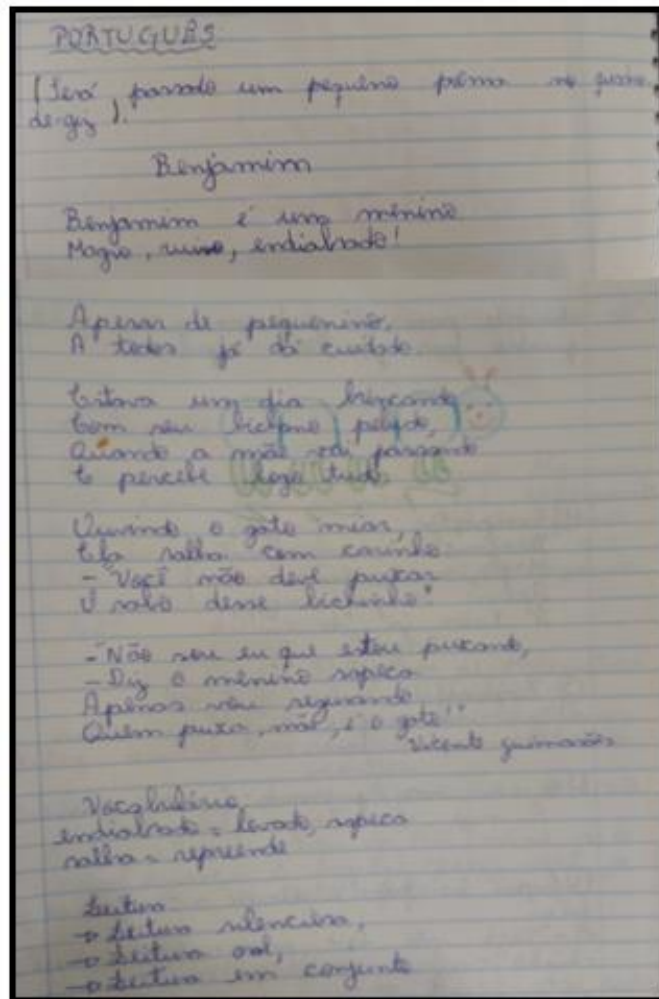 PORTUGUÊS
(Será passado um pequeno poema no quadro
de-giz).
Benjamim
Benjamim é um menino
Magro, ruivo, endiabrado!
Apesar de pequenino,
A todos já dá cuidado.
Estava um dia brincando
Com seu bichano pelado,
Quando a mãe vai passando
E percebe logo tudo.
Ouvindo o gato miar,
Ela ralha com carinho
- "Você não deve puxar
O rabo desse bichinho"
- "Não sou eu que estou puxando,
- Diz o menino sapeca
Apenas vou segurando,
Quem puxa, mãe, é o gato"
Vicente Guimarães
Vocabulário
endiabrado = levado, sapeca
ralha = repreende
Leitura
→ Leitura silenciosa,
→ Leitura oral,
→ Leitura em conjunto